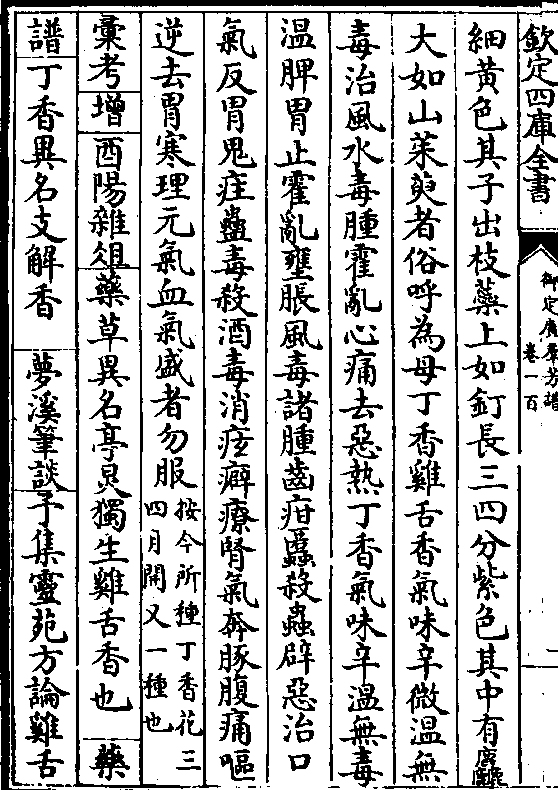 欽定四庫全書
御定廣羣芳譜
卷一百
細黃色其子出枝蘂上如釘長三四分紫色其中有麄
大如山茱萸者俗呼為母丁香雞舌香氣味辛微溫無
毒治風水毒腫霍亂心痛去惡熱丁香氣味辛溫無毒
溫脾胃止霍亂壅脹風毒諸腫齒疳䘌殺蟲辟惡治口
氣反胃鬼疰蠱毒殺酒毒消痃癖療腎氣奔豚腹痛嘔
逆去胃寒理元氣血氣盛者勿服按今所種丁香花三
四月開又一種也
彙考增酉陽雜俎藥草異名亭炅獨生雞舌香也 藥
譜丁香異名支解香 夢溪筆談予集靈苑方論雞舌